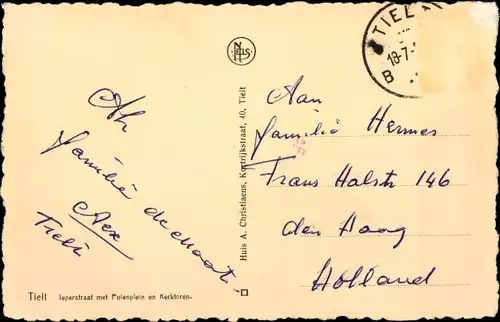 TIEL
18-7-
B
Nels
Afz.
Familie de Maat
Tielt
Aan
familie Hermes
Frans Halstr 146
den Haag
Holland
Huis A. Christiaens, Kortrijkstraat, 40, Tielt
Tielt Ieperstraat met Polenplein en Kerktoren.